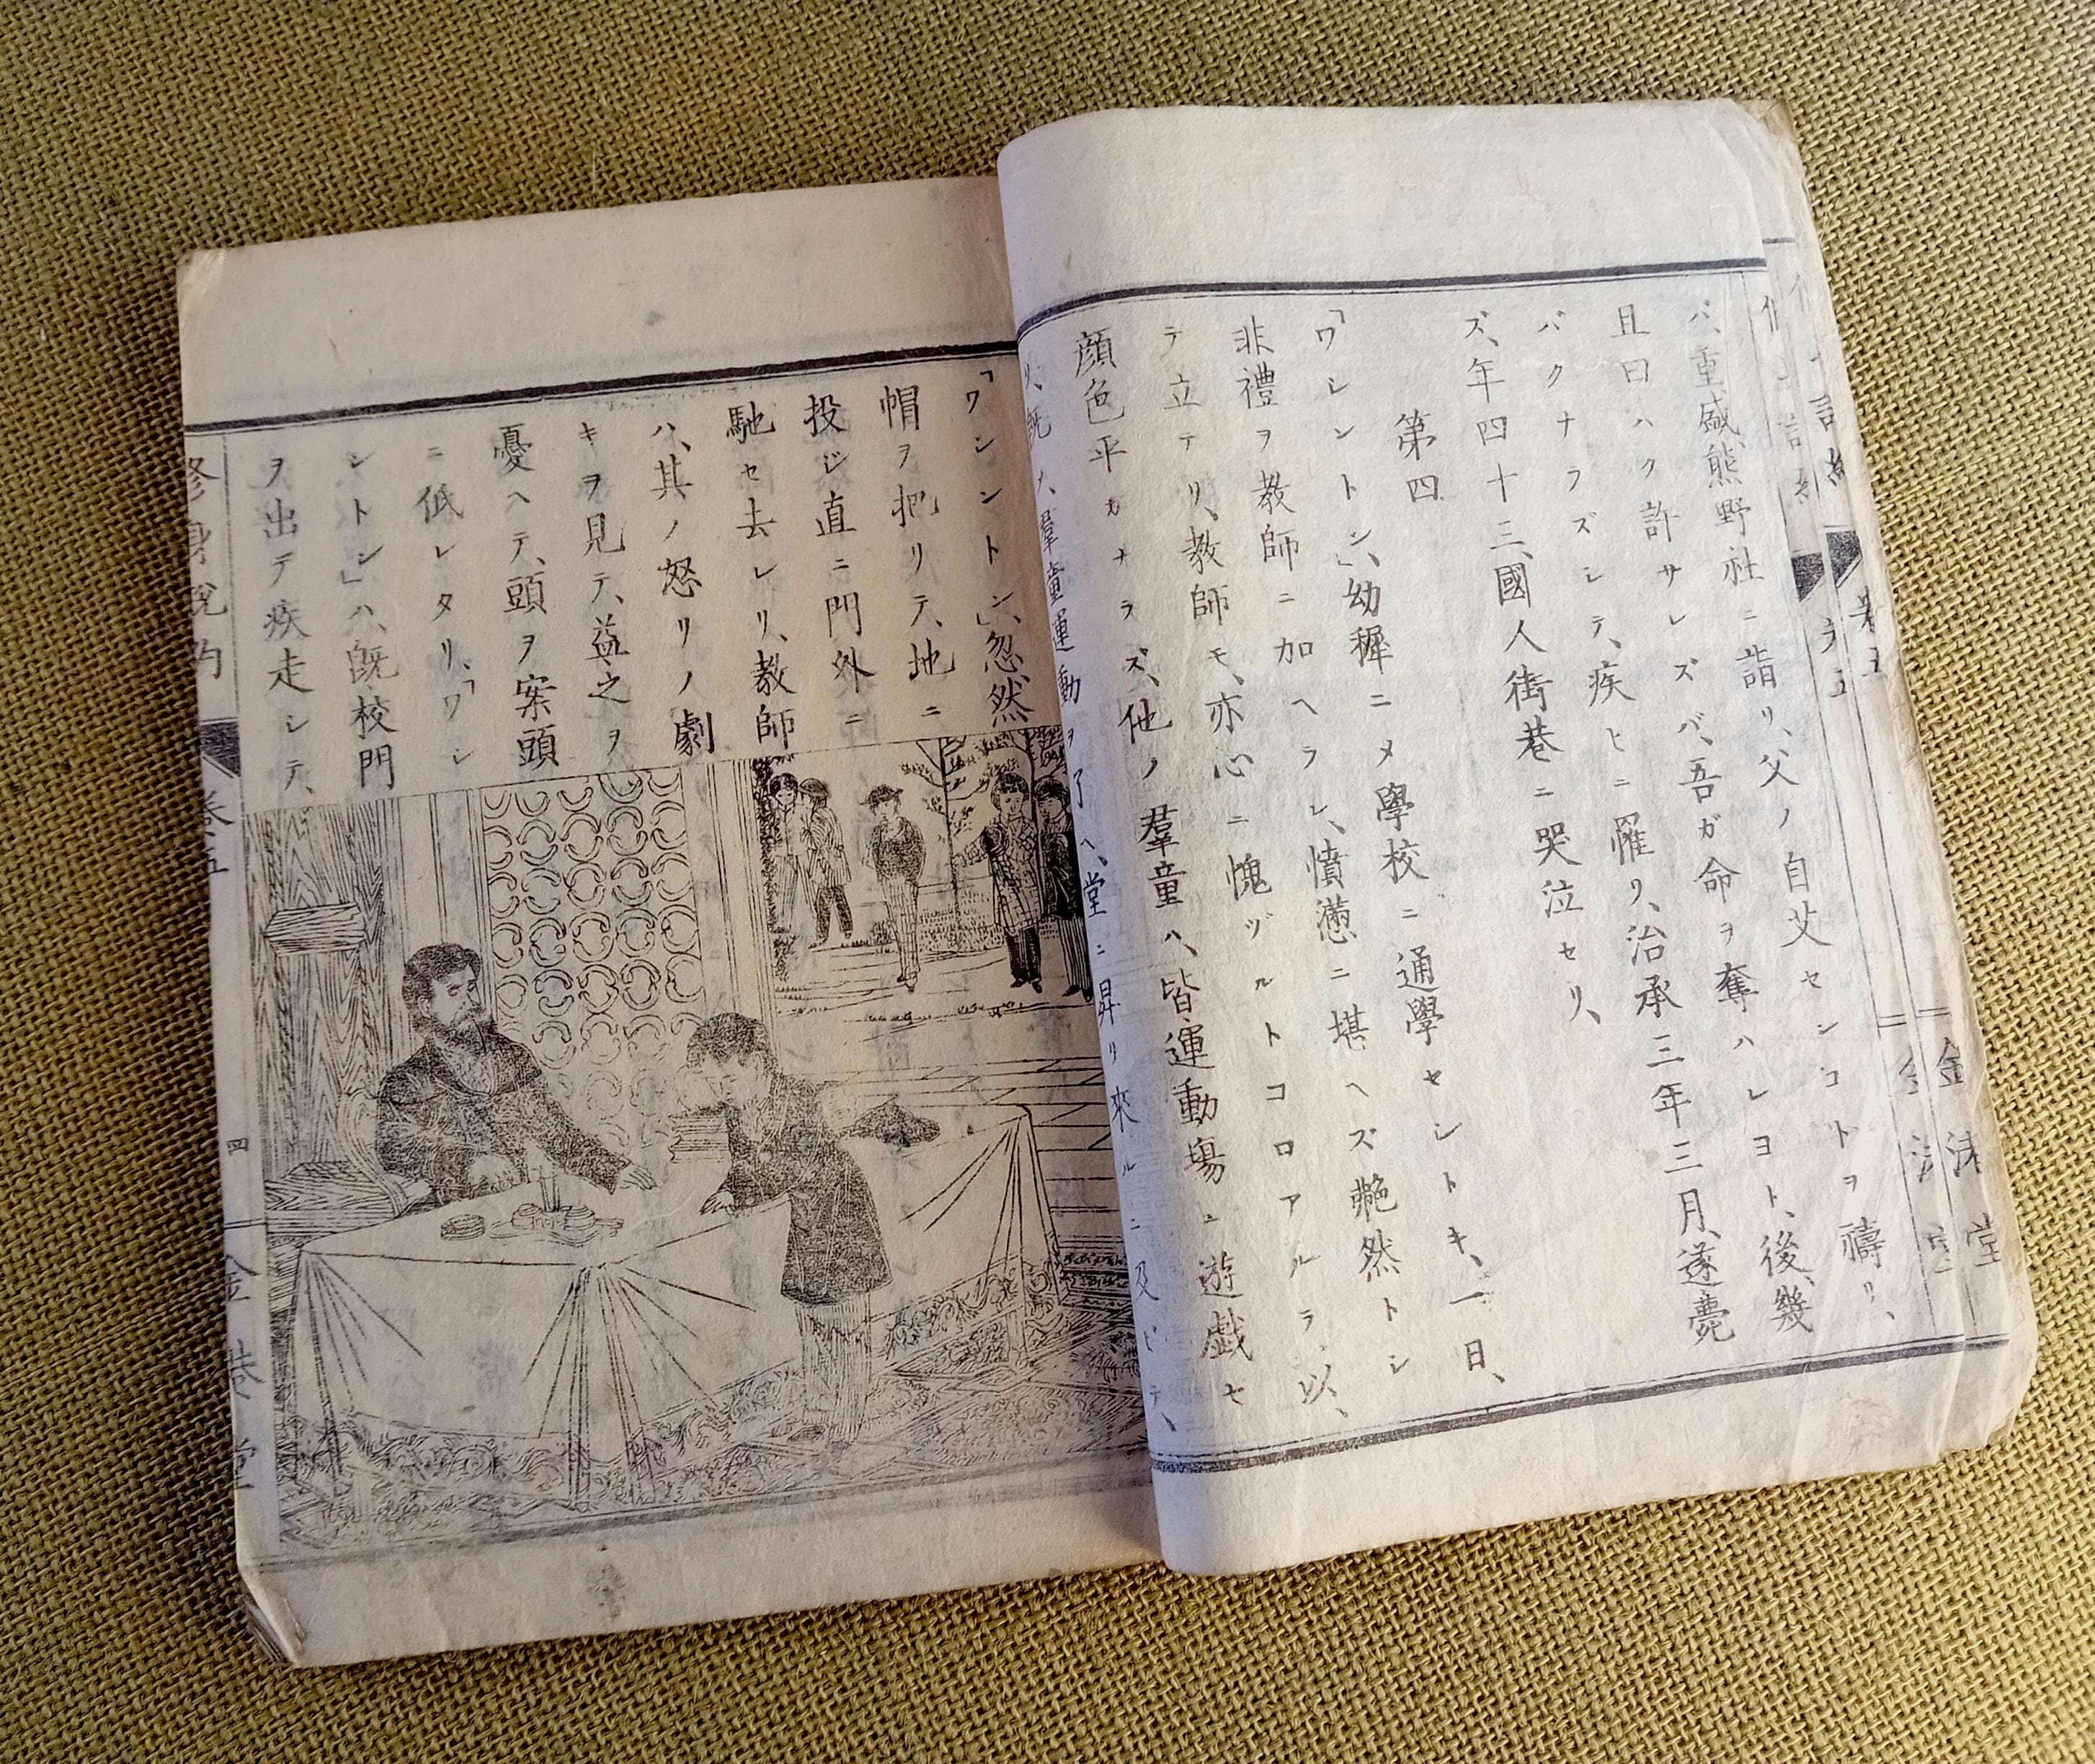 バ、重盛、熊野社ニ詣リ、父ノ自艾センコトヲ禱リ、
且曰ハク許サレズバ、吾ガ命ヲ奪ハレヨト、後、幾
バクナフズシテ、疾ヒニ罹リ、治承三年三月、遂薨
ズ、年四十三、國人街巷ニ哭泣セリ、
第四
「ワシントン」、幼穉ニメ學校ニ通學セシトキ、一日、
非禮ヲ教師ニ加ヘラレ、憤懣ニ堪ヘズ艴然トシ
テ立テリ、教師モ、亦心ニ愧ヅルトコロアルラ以、
顔色平カナラズ、他ノ羣童ハ、皆運動塲ニ遊戯セ
リ、既ノ、羣童運動ヲ了ヘ、堂ニ昇リ來ルニ及ビテ、
「ワシントン」、忽然
帽ヲ把リテ、地ニ
投じ直ニ門外ニ
馳セ去レリ、教師
ハ、其ノ怒リノ劇
キヲ見テ、益之ヲ
憂ヘテ、頭ヲ案頭
ニ低レタリ、「ワシ
ントン」ハ、既校門
ヲ出デ疾走シテ、
修身説約
卷五
四
金港堂